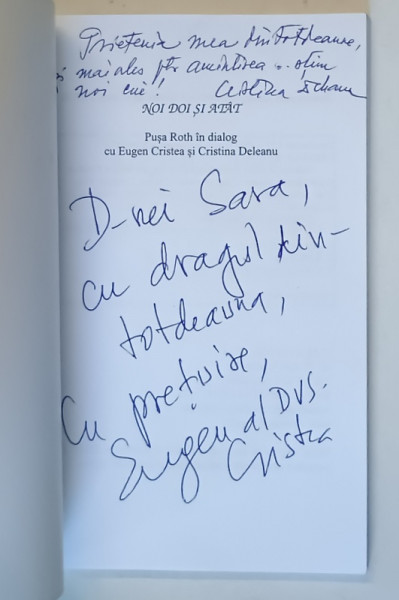 Prietenia mea dintotdeauna,
și mai ales ptr amintirea .. știm
noi cui! Cristina Deleanu
NOI DOI ȘI ATÂT
Pușa Roth în dialog
cu Eugen Cristea și Cristina Deleanu
D-nei Sara,
cu dragul din-
totdeauna,
Cu prețuire,
Eugen al Dvs.
Cristea